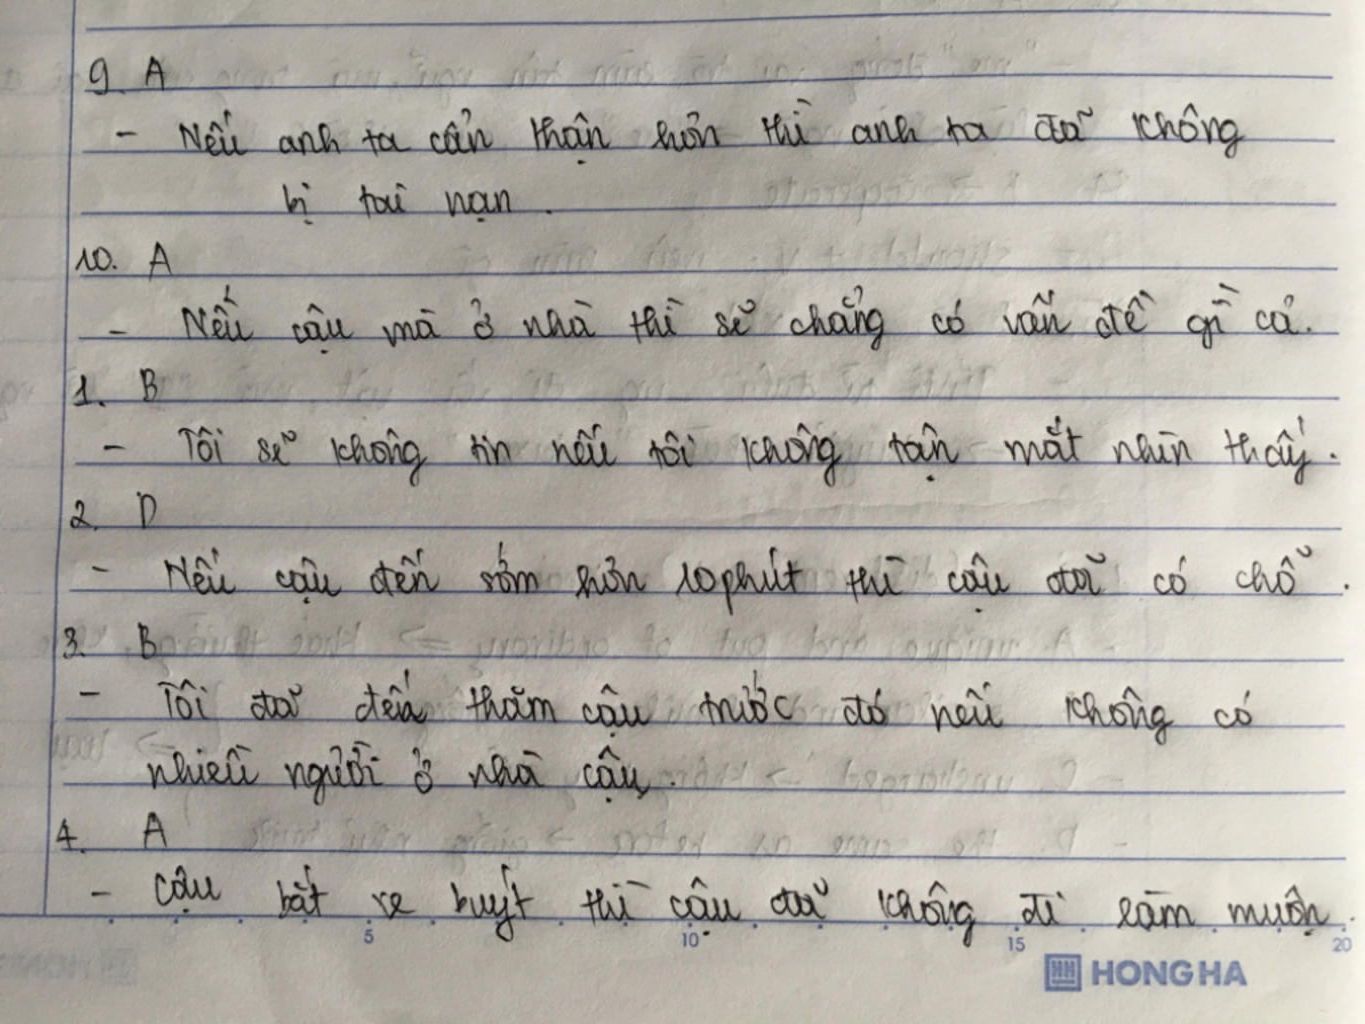 9. A
- Nếu anh ta cẩn thận hơn thì anh ta đã không
bị tai nạn.
10. A
- Nếu cậu mà ở nhà thì sẽ chẳng có vấn đề gì cả.
1. B
- Tôi sẽ không tin nếu tôi không tận mắt nhìn thấy.
2. D
- Nếu cậu đến sớm hơn 10 phút thì cậu đã có chỗ.
3. B
- Tôi đã đến thăm cậu trước đó nếu không có
nhiều người ở nhà cậu.
4. A
- Cậu bắt xe buýt thì cậu đã không đi làm muộn.
5 10 15 20
HONG HA